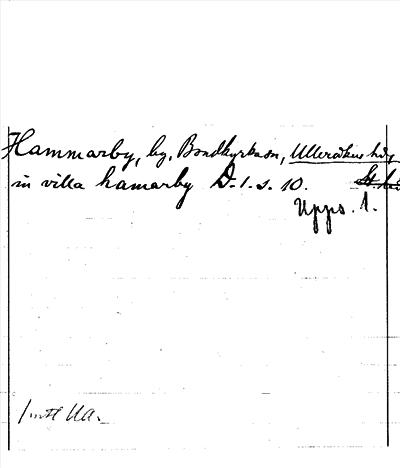 Hammarby, by, Bondkyrkosn, Ulleråkers hd,
in villa hamarby D. 1. s. 10.
Upps. 1.
Ua.